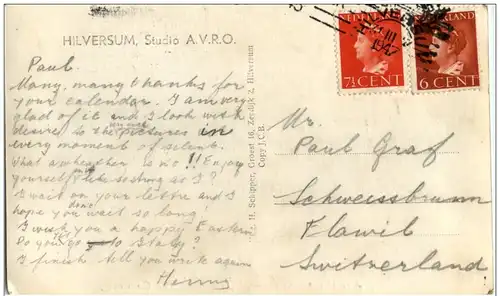 HILVERSUM, Studio A.V.R.O.
Paul.
Many, many thanks for
your calendar. I am very
glad of it and I look with
desire to the pictures in
every moment of silent.
What a wheather is it!! Enjoy
yourself like so long as I?
I wait on your lettre and I
hope you don't wait so long!
I wish you a happy Eastern
Do you go to Italy?
I finish tell you write again
Henny
Fa. H. Schipper, Groest 16, Zeedijk 2, Hilversum
Copy J.C.B.
1947
NEDERLAND
7½ CENT
NEDERLAND
6 CENT
Mr.
Paul Graf
Schweissbrunn
Flawil
Switzerland